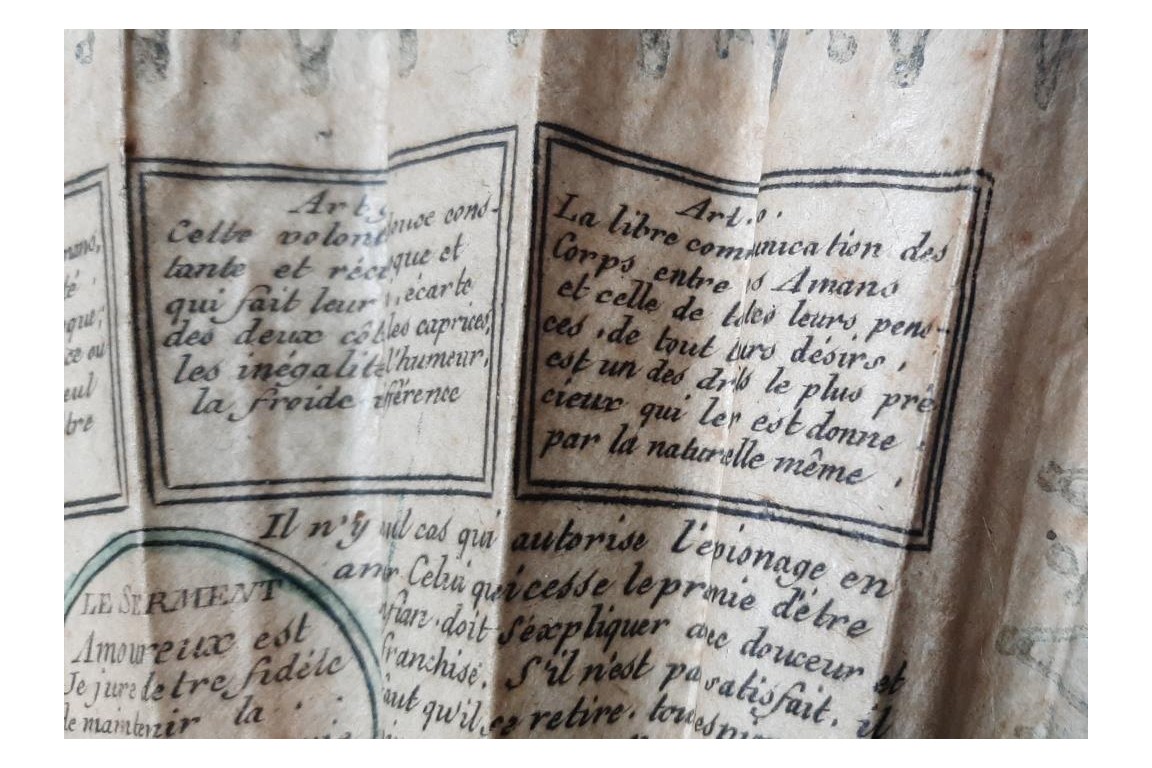 mans,
té
que;
ce ou
eul
bre
Art
Cette volont douce cons-
tante et réci oque et
qui fait leur , écarte
des deux côt les caprices,
les inégalité l'humeur,
la froide ifférence
Art.
La libre communication des
Corps entre s Amans
et celle de t des leurs pens-
ces , de tout urs désirs ,
est un des dr ls le plus pré
cieux qui le r est donne
par la natur elle même .
Il n'y nul cas qui autorise l'épionage en
am r Celui qui cesse le pr mie d'être
nfian . doit s'éxpliquer a ec douceur et
franchise. S'il n'est pa satisfait. il
faut qu'il se retire. tou
LE SERMENT
Amoureux est
Je jure de tre fidéle
de maintenir la